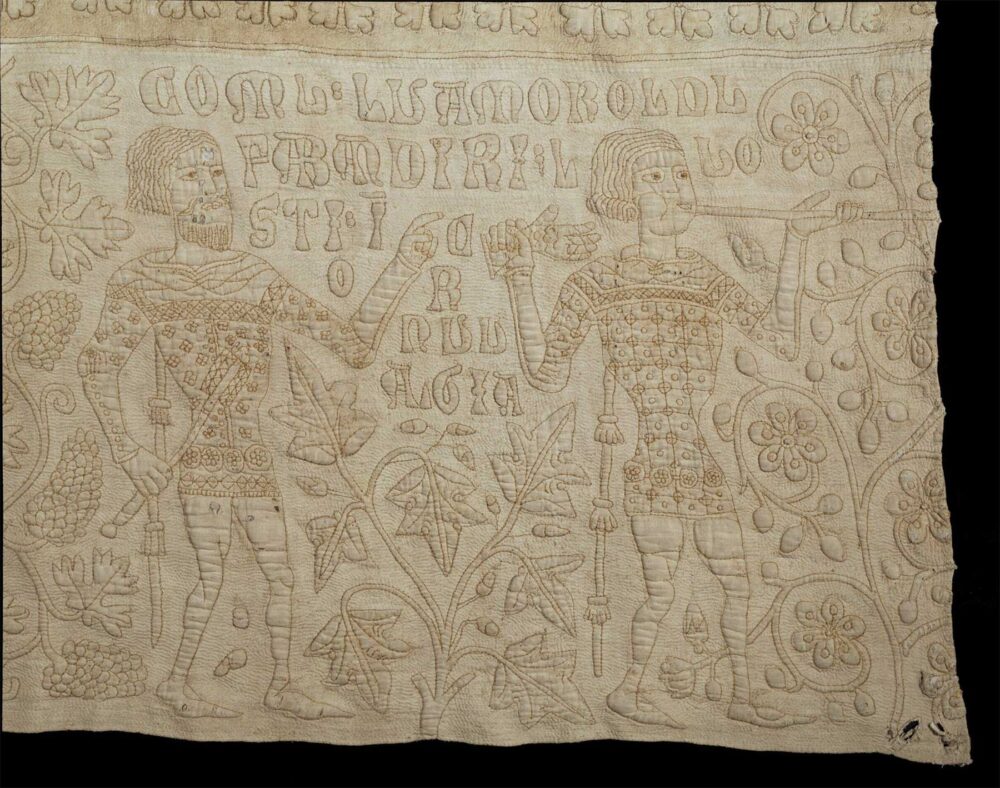 COMU: LU AMOROLDU
FA BANDIRI: L LO
STI: Ī C
O R
NUU
ALGIA